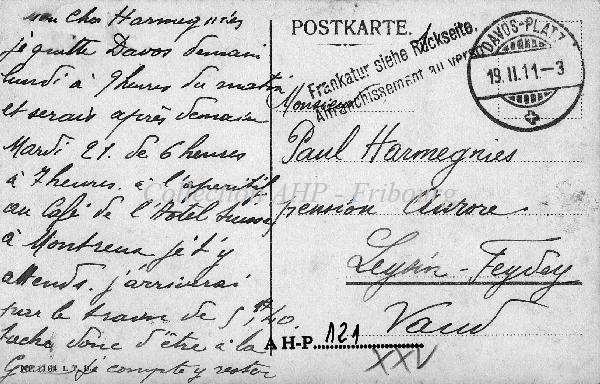 mon Cher Harmegnies
je quitte Davos demain
lundi à 9 heures du matin
et serais après demain
Mardi 21. de 6 heures
à 7 heures. à l'apéritif
au Café de l'Hôtel Suisse
à Montreux je t'y
attends. j'arriverai
par le tram de 5 h 40.
tache donc d'être à la
Gare je compte y rester
POSTKARTE.
Frankatur siehe Rückseite.
Affranchissement au verso
DAVOS-PLATZ
19.II.11-3
Monsieur
Paul Harmegnies
pension Aurore
Leysin-Feydey
Vaud
AH-P. 121
XXV
Collection AHP - Fribourg